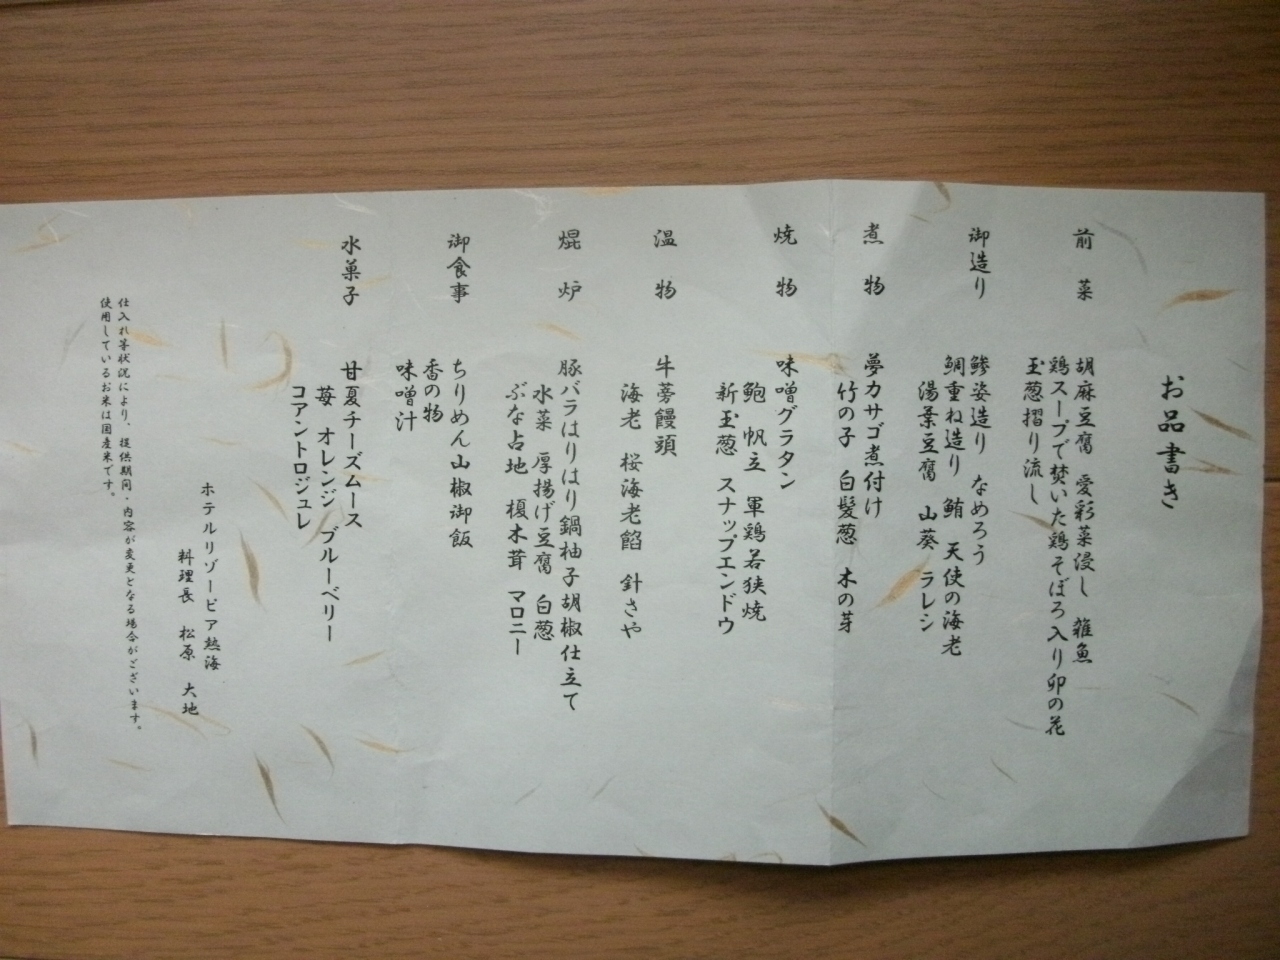 お品書き
前菜
胡麻豆腐 愛彩菜浸し 雑魚
鶏スープで焚いた鶏そぼろ入り卯の花
玉葱摺り流し
御造り
鯵姿造り なめろう
鯛重ね造り 鮪 天使の海老
湯葉豆腐 山葵 ラレシ
煮物
夢カサゴ煮付け
竹の子 白髪葱 木の芽
焼物
味噌グラタン
鮑 帆立 軍鶏若狭焼
新玉葱 スナップエンドウ
温物
牛蒡饅頭
海老 桜海老餡 針さや
焜炉
豚バラはりはり鍋柚子胡椒仕立て
水菜 厚揚げ豆腐 白葱
ぶな占地 榎木茸 マロニー
御食事
ちりめん山椒御飯
香の物
味噌汁
水菓子
甘夏チーズムース
苺 オレンジ ブルーベリー
コアントロジュレ
ホテルリゾーピア熱海
料理長 松原 大地
仕入れ等状況により、提供期間・内容が変更となる場合がございます。
使用しているお米は国産米です。